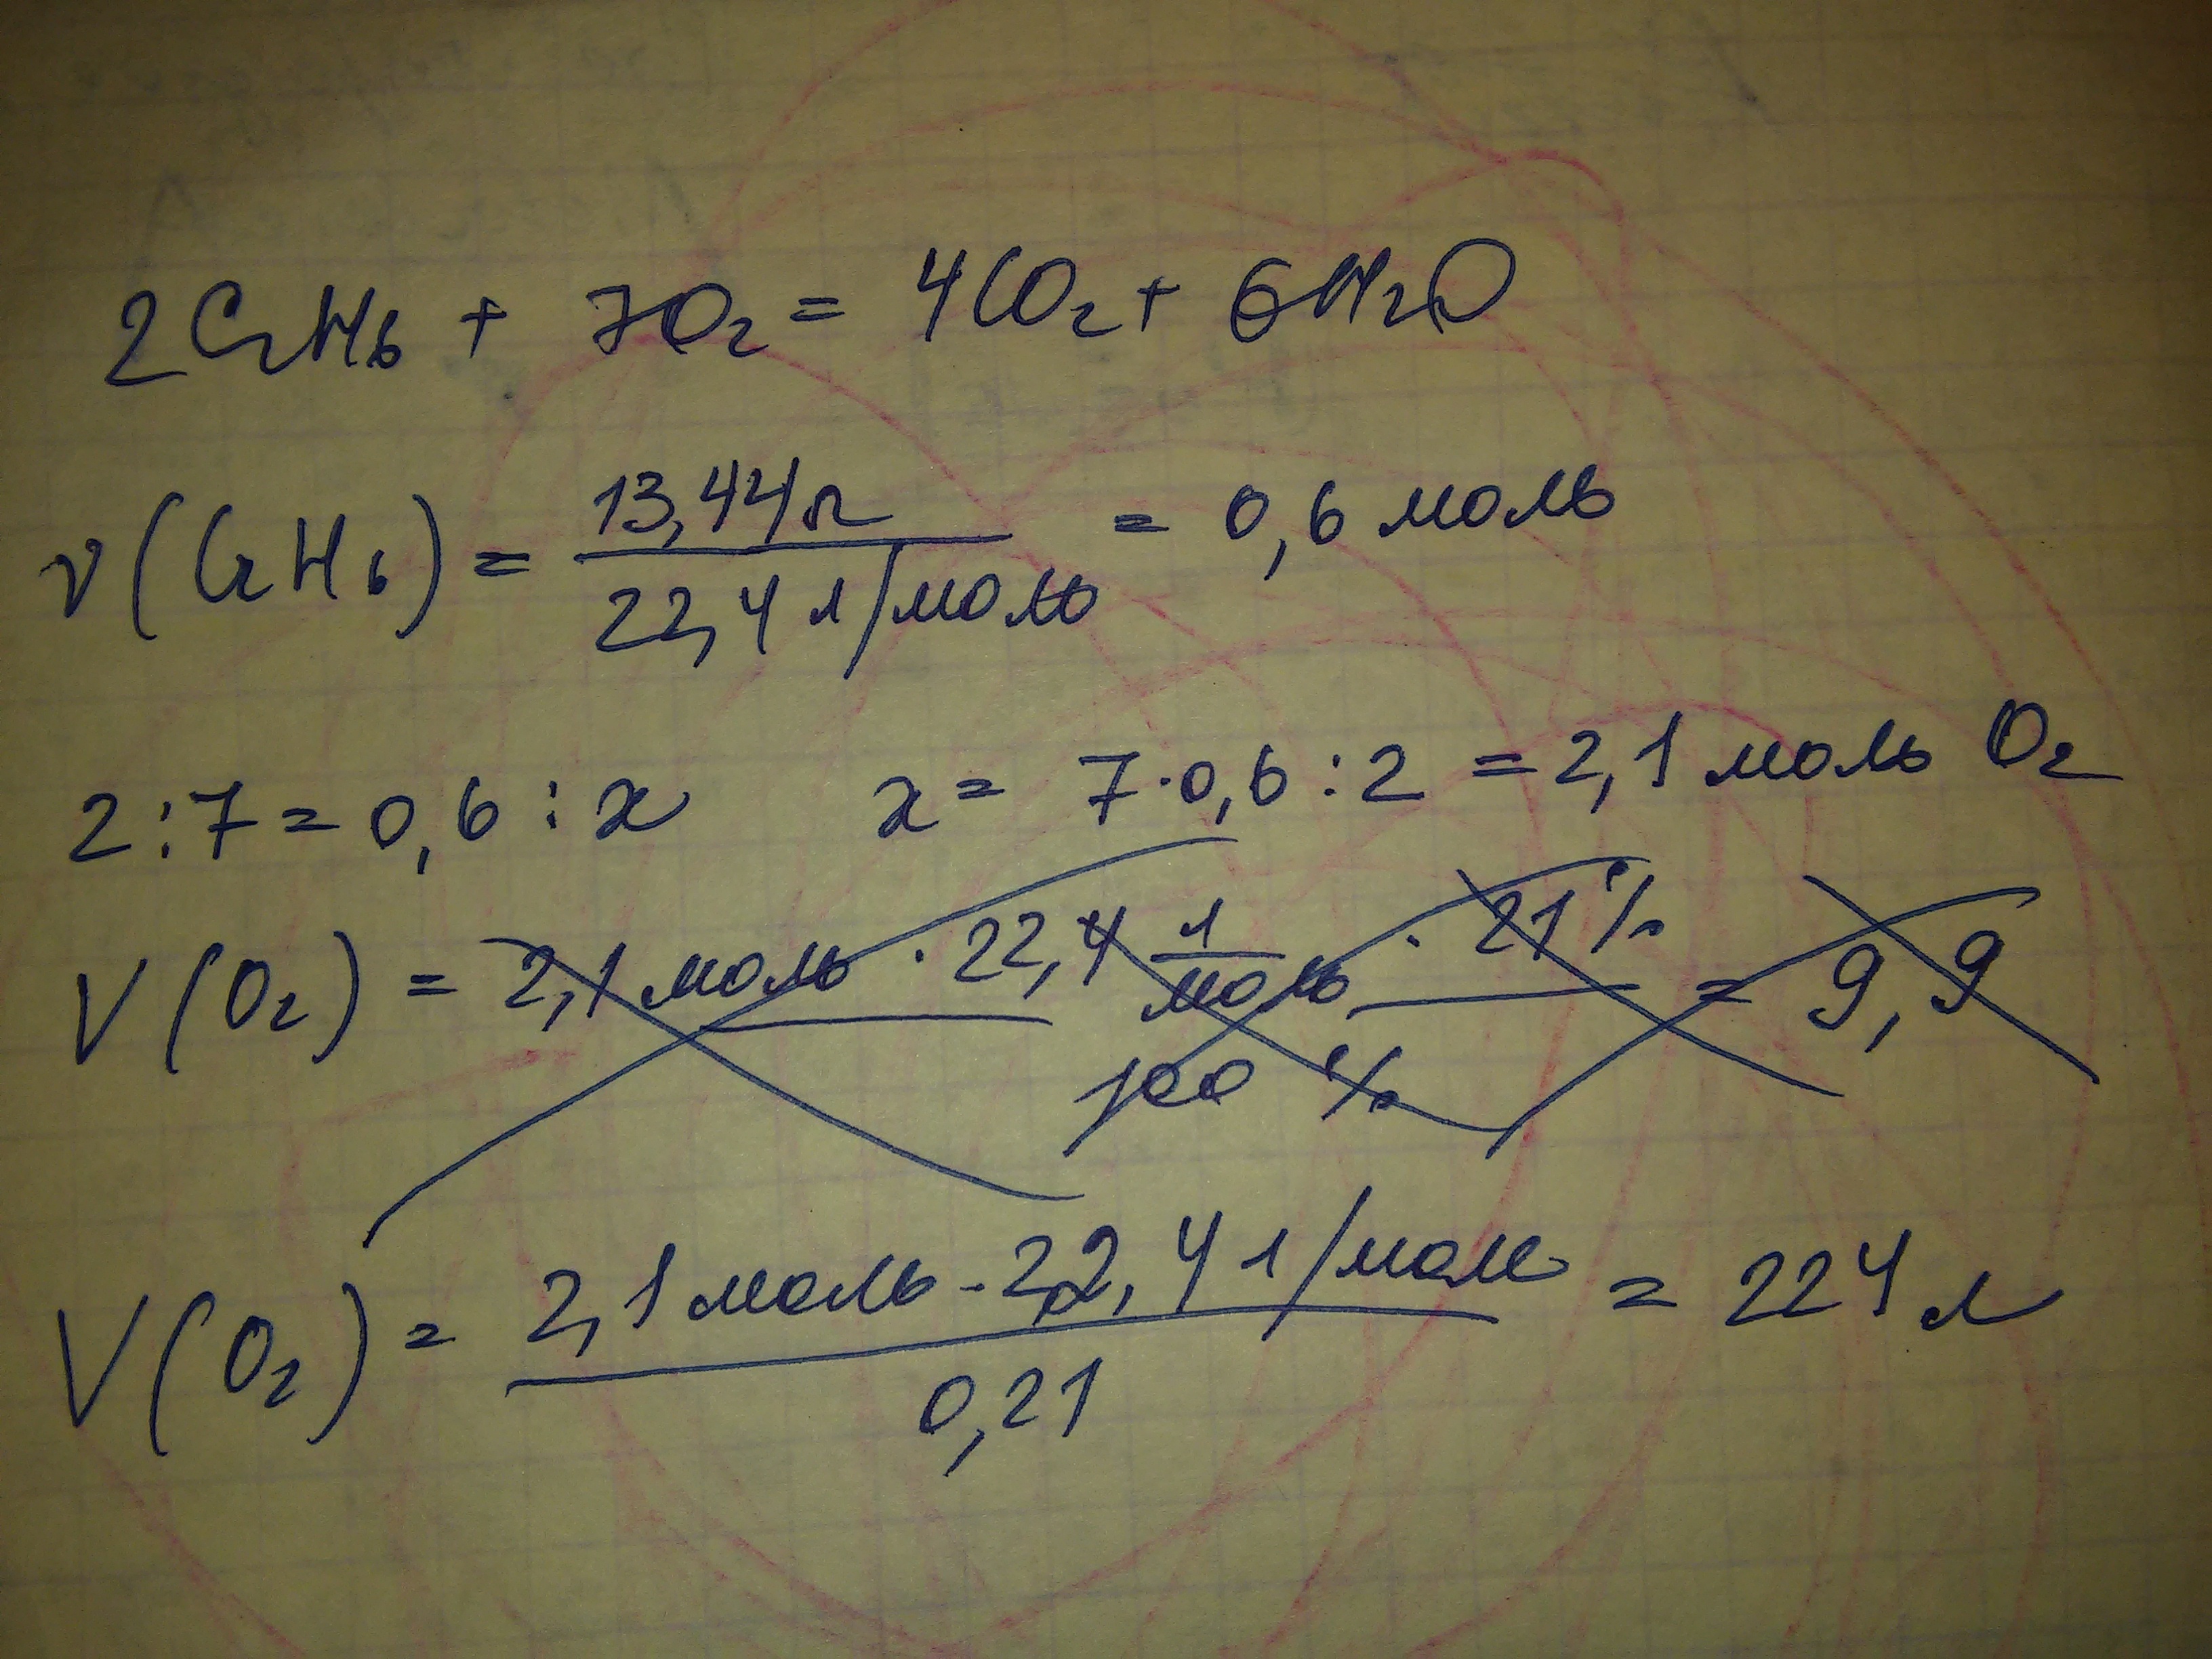 2C₂H₆ + 7O₂ = 4CO₂ + 6H₂O
ν(C₂H₆) = 13,44л / 22,4 л/моль = 0,6 моль
2:7=0,6:x x= 7·0,6:2 =2,1 моль O₂
V(O₂) = 2,1 моль · 22,4 л/моль · 21% / 100% = 9,9
V(O₂) = 2,1 моль · 22,4 л/моль / 0,21 = 224 л